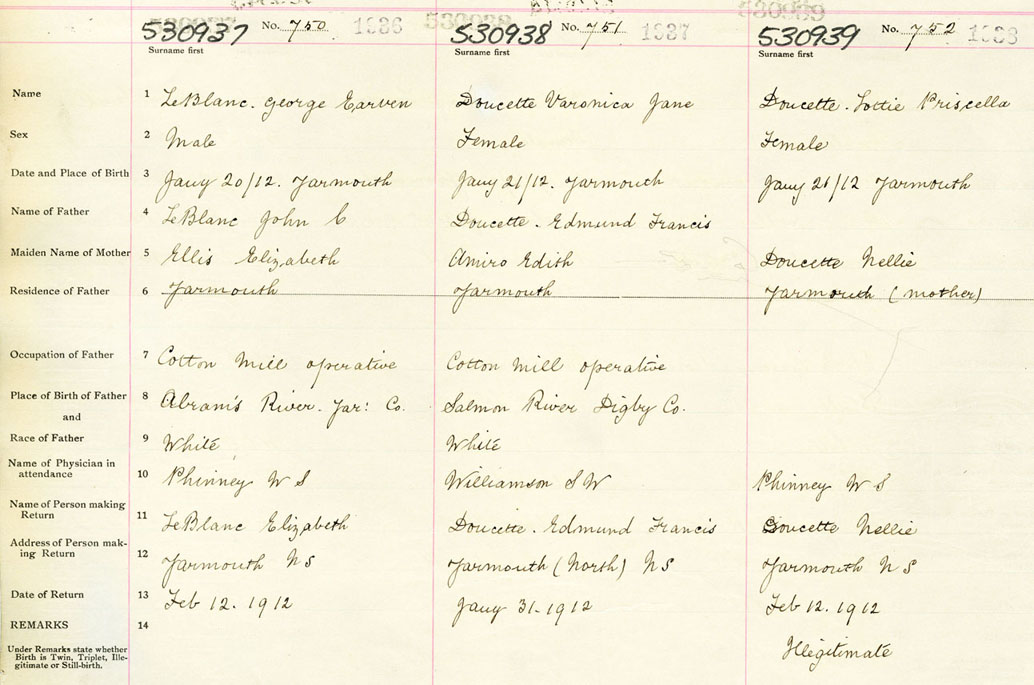 530937 No. 750 1336 530938 No. 751 1337 530939 No. 752 1338
Surname first Surname first Surname first
Name 1 LeBlanc. George Earven Doucette Varonica Jane Doucette. Lottie Priscella
Sex 2 Male Female Female
Date and Place of Birth 3 Jany 20/12. Yarmouth Jany 21/12. Yarmouth Jany 21/12 Yarmouth
Name of Father 4 LeBlanc John C Doucette. Edmund Francis
Maiden Name of Mother 5 Ellis Elizabeth Amiro Edith Doucette Nellie
Residence of Father 6 Yarmouth Yarmouth Yarmouth (mother)
Occupation of Father 7 Cotton Mill operative Cotton Mill operative
Place of Birth of Father 8 Abram's River. Yar: Co. Salmon River Digby Co.
and
Race of Father 9 White White
Name of Physician in
attendance 10 Phinney W S Williamson S W Phinney W S
Name of Person making
Return 11 LeBlanc Elizabeth Doucette. Edmund Francis Doucette Nellie
Address of Person mak-
ing Return 12 Yarmouth NS Yarmouth (North) NS Yarmouth NS
Date of Return 13 Feb 12. 1912 Jany 31-1912 Feb 12. 1912
REMARKS 14
Under Remarks state whether
Birth is Twin, Triplet, Ille-
gitimate or Still-birth. Illegitimate